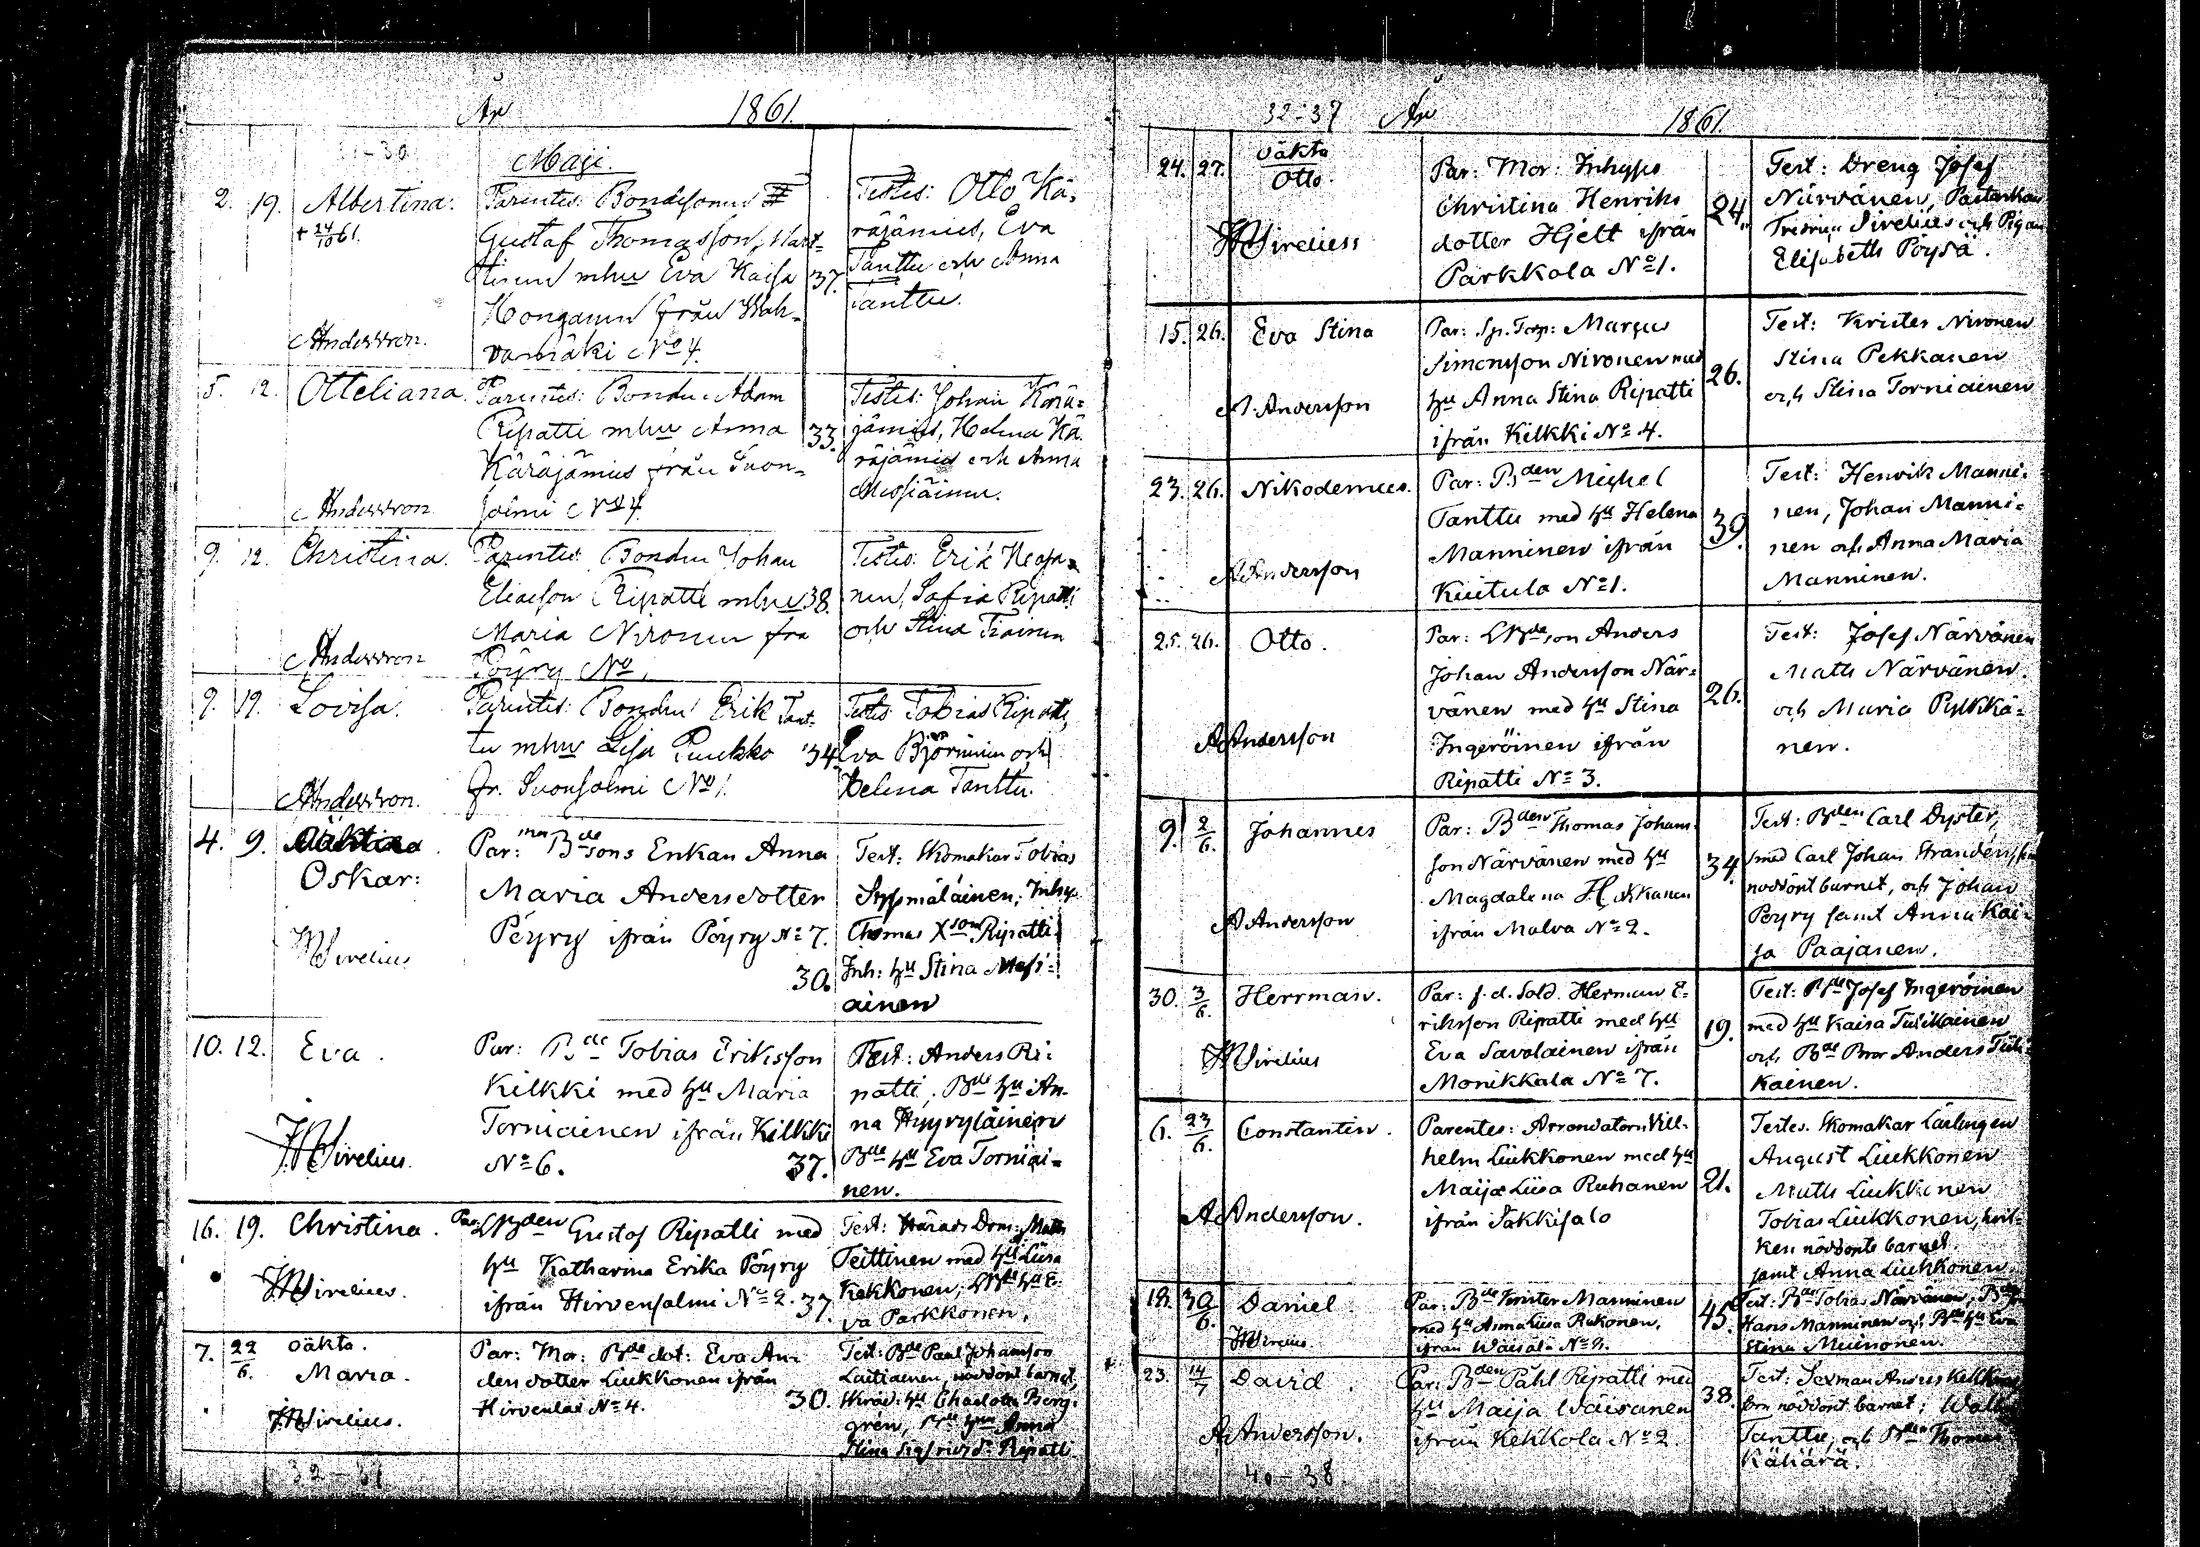 År 1861.
Maji.
2. 19. Albertina.
+ 24/10 61.
Andersson.
Parentes: Bondesonen
Gustaf Thomasson, Mart-
tinen mhu Eva Kaisa
Honganen från Wah-
vamäki No 4.
37.
Testes: Otto Kä-
räjämies, Eva
Tanttu och Anna
Tanttu.
5. 12. Otteliana.
Andersson
Parentes: Bonden Adam
Ripatti mhu Anna
Käräjämies från Suon-
salmi No 4.
33.
Testes: Johan Kärä-
jämies, Helena Kä-
räjämies och Anna
Messiäinen.
9. 12. Christina.
Andersson
Parentes: Bonden Johan
Eliasson Ripatti mhu
Maria Nironen fra
Pöyry No
38.
Testes: Erik
nen, Safia Ripatti
och Stina Tiainen
9. 19. Lovisa.
Andersson.
Parentes: Bonden Erik Tant-
tu mhu Lisa Puukko
fr. Suonsalmi No 1.
34.
Testes Tobias Ripatti,
Eva Björninen och
Helena Tanttu.
4. 9.
Oskar:
Sirelius
Par: Bdesons Enkan Anna
Maria Andersdotter
Pöyry ifrån Pöyry No 7.
30.
Test: Skomakar Tobias
Syssmäläinen, Inhys
Thomas Xson Ripatti
Inh: hu Stina Messi-
ainen
10. 12. Eva.
Sirelius.
Par: Bde Tobias Eriksson
Kilkki med hu Maria
Torniainen ifrån Kilkki
No 6.
37.
Test: Anders Ri-
patti, Bde hu An-
na Hyyryläinen
Bde hu Eva Torniai-
nen.
16. 19. Christina.
Sirelius.
Par: Bden Gustaf Ripatti med
hu Katharina Erika Pöyry
ifrån Hirvensalmi No 2.
37.
Test: Härads Dom: Matts
Teittinen med hu Liisa
Kekkonen, hu E-
va Parkkonen.
7. 22/6. oäkta.
Maria.
Sirelius.
Par: Mor: Bde dot: Eva An-
dersdotter Liukkonen ifrån
No 4.
30.
Test: Bde Paul Johansson
Laitiainen, nöddöpt barnet,
hu Charlotta Berg-
gren, Anna
Stina Sigfridsdr Ripatti.
32-37 År 1861.
24. 27. oäkta
Otto.
Sirelius
Par: Mor: Inhyses
Christina Henriks
dotter Hjelt ifrån
Parkkola No 1.
24.
Test: Dreng Josef
Närvänen, Pastorskan
Sirelius och Pigan
Elisabeth Pöysä.
15. 26. Eva Stina
A. Andersson
Par: Sp. Torp: Marcus
Simonsson Nironen med
hu Anna Stina Ripatti
ifrån Kilkki No 4.
26.
Test: Krister Nironen
Stina Pekkanen
och Stina Torniainen
23. 26. Nikodemus.
A Andersson
Par: Bden Michel
Tanttu med hu Helena
Manninen ifrån
Kuitula No 1.
39.
Test: Henrik Manni-
nen, Johan Manni-
nen och Anna Maria
Manninen.
25. 26. Otto.
A Andersson
Par: son Anders
Johan Andersson När-
vänen med hu Stina
Ingeröinen ifrån
Ripatti No 3.
26.
Test: Josef Närvänen
Matts Närvänen
och Maria Pylkkä-
nen.
9. 2/6. Johannes
A Andersson
Par: Bden Thomas Johans-
son Närvänen med hu
Magdalena
ifrån Malva No 2.
34.
Test: Bden Carl Dyster,
med Carl Johan
nöddöpt barnet, och Johan
Pöyry samt Anna Kai-
sa Paajanen.
30. 3/6. Herrman.
Sirelius
Par: f. d. Sold. Herman E-
riksson Ripatti med hu
Eva Savolainen ifrån
Monikkala No 7.
19.
Test: Josef Ingeröinen
med hu Kaisa Tulikainen
och Bde Bror Anders Tuli-
kainen.
6. 23/6. Constantin.
A Andersson.
Parentes: Arrendatorn Vil-
helm Liukkonen med hu
Maija Liisa Ruhanen
ifrån Jäkkisalo
21.
Testes. Skomakar Lärlingen
August Liukkonen
Matts Liukkonen
Tobias Liukkonen, hvil-
ken nöddöpte barnet
samt Anna Liukkonen.
18. 30/6. Daniel.
Sirelius
Par: Bde Krister Manninen
med hu Anna Liisa Rukonen,
ifrån Wäisälä No 2.
45.
Test: Bde Tobias Närvänen,
Hans Manninen och Bde hu Eva
Stina Muinonen.
23. 14/7 David.
A Andersson.
Par: Bden Påhl Ripatti med
hu Maija Wäisänen
ifrån Kekkola No 2.
38.
Test: Sexman Anders
som nöddöpt barnet;
Tanttu, och Thomas
Kähärä.
40-38